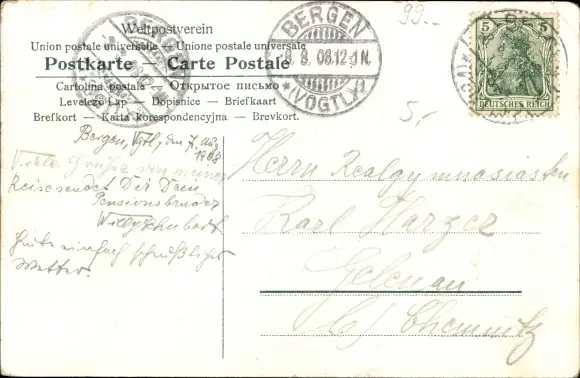 Weltpostverein
Union postale universelle — Unione postale universale
Postkarte — Carte Postale
Cartolina postale — Открытое письмо
Levelező Lap — Dopisnice — Briefkaart
Brefkort — Karta korespondencyjna — Brevkort.
BERGEN
8.8.08.12-1N.
*(VOGTL.)
BERGEN
93.-
5,-
5 5
DEUTSCHES REICH
Bergen, Vgtl, den 7. Aug.
1908
Viele Grüße von meiner
Reise sendet Dir Dein
Pensionsbruder
Willy Schubert
Heute einfach scheußliches
Wetter.
Herrn Realgymnasiasten
Karl Harzer
Gelenau
b/ Chemnitz